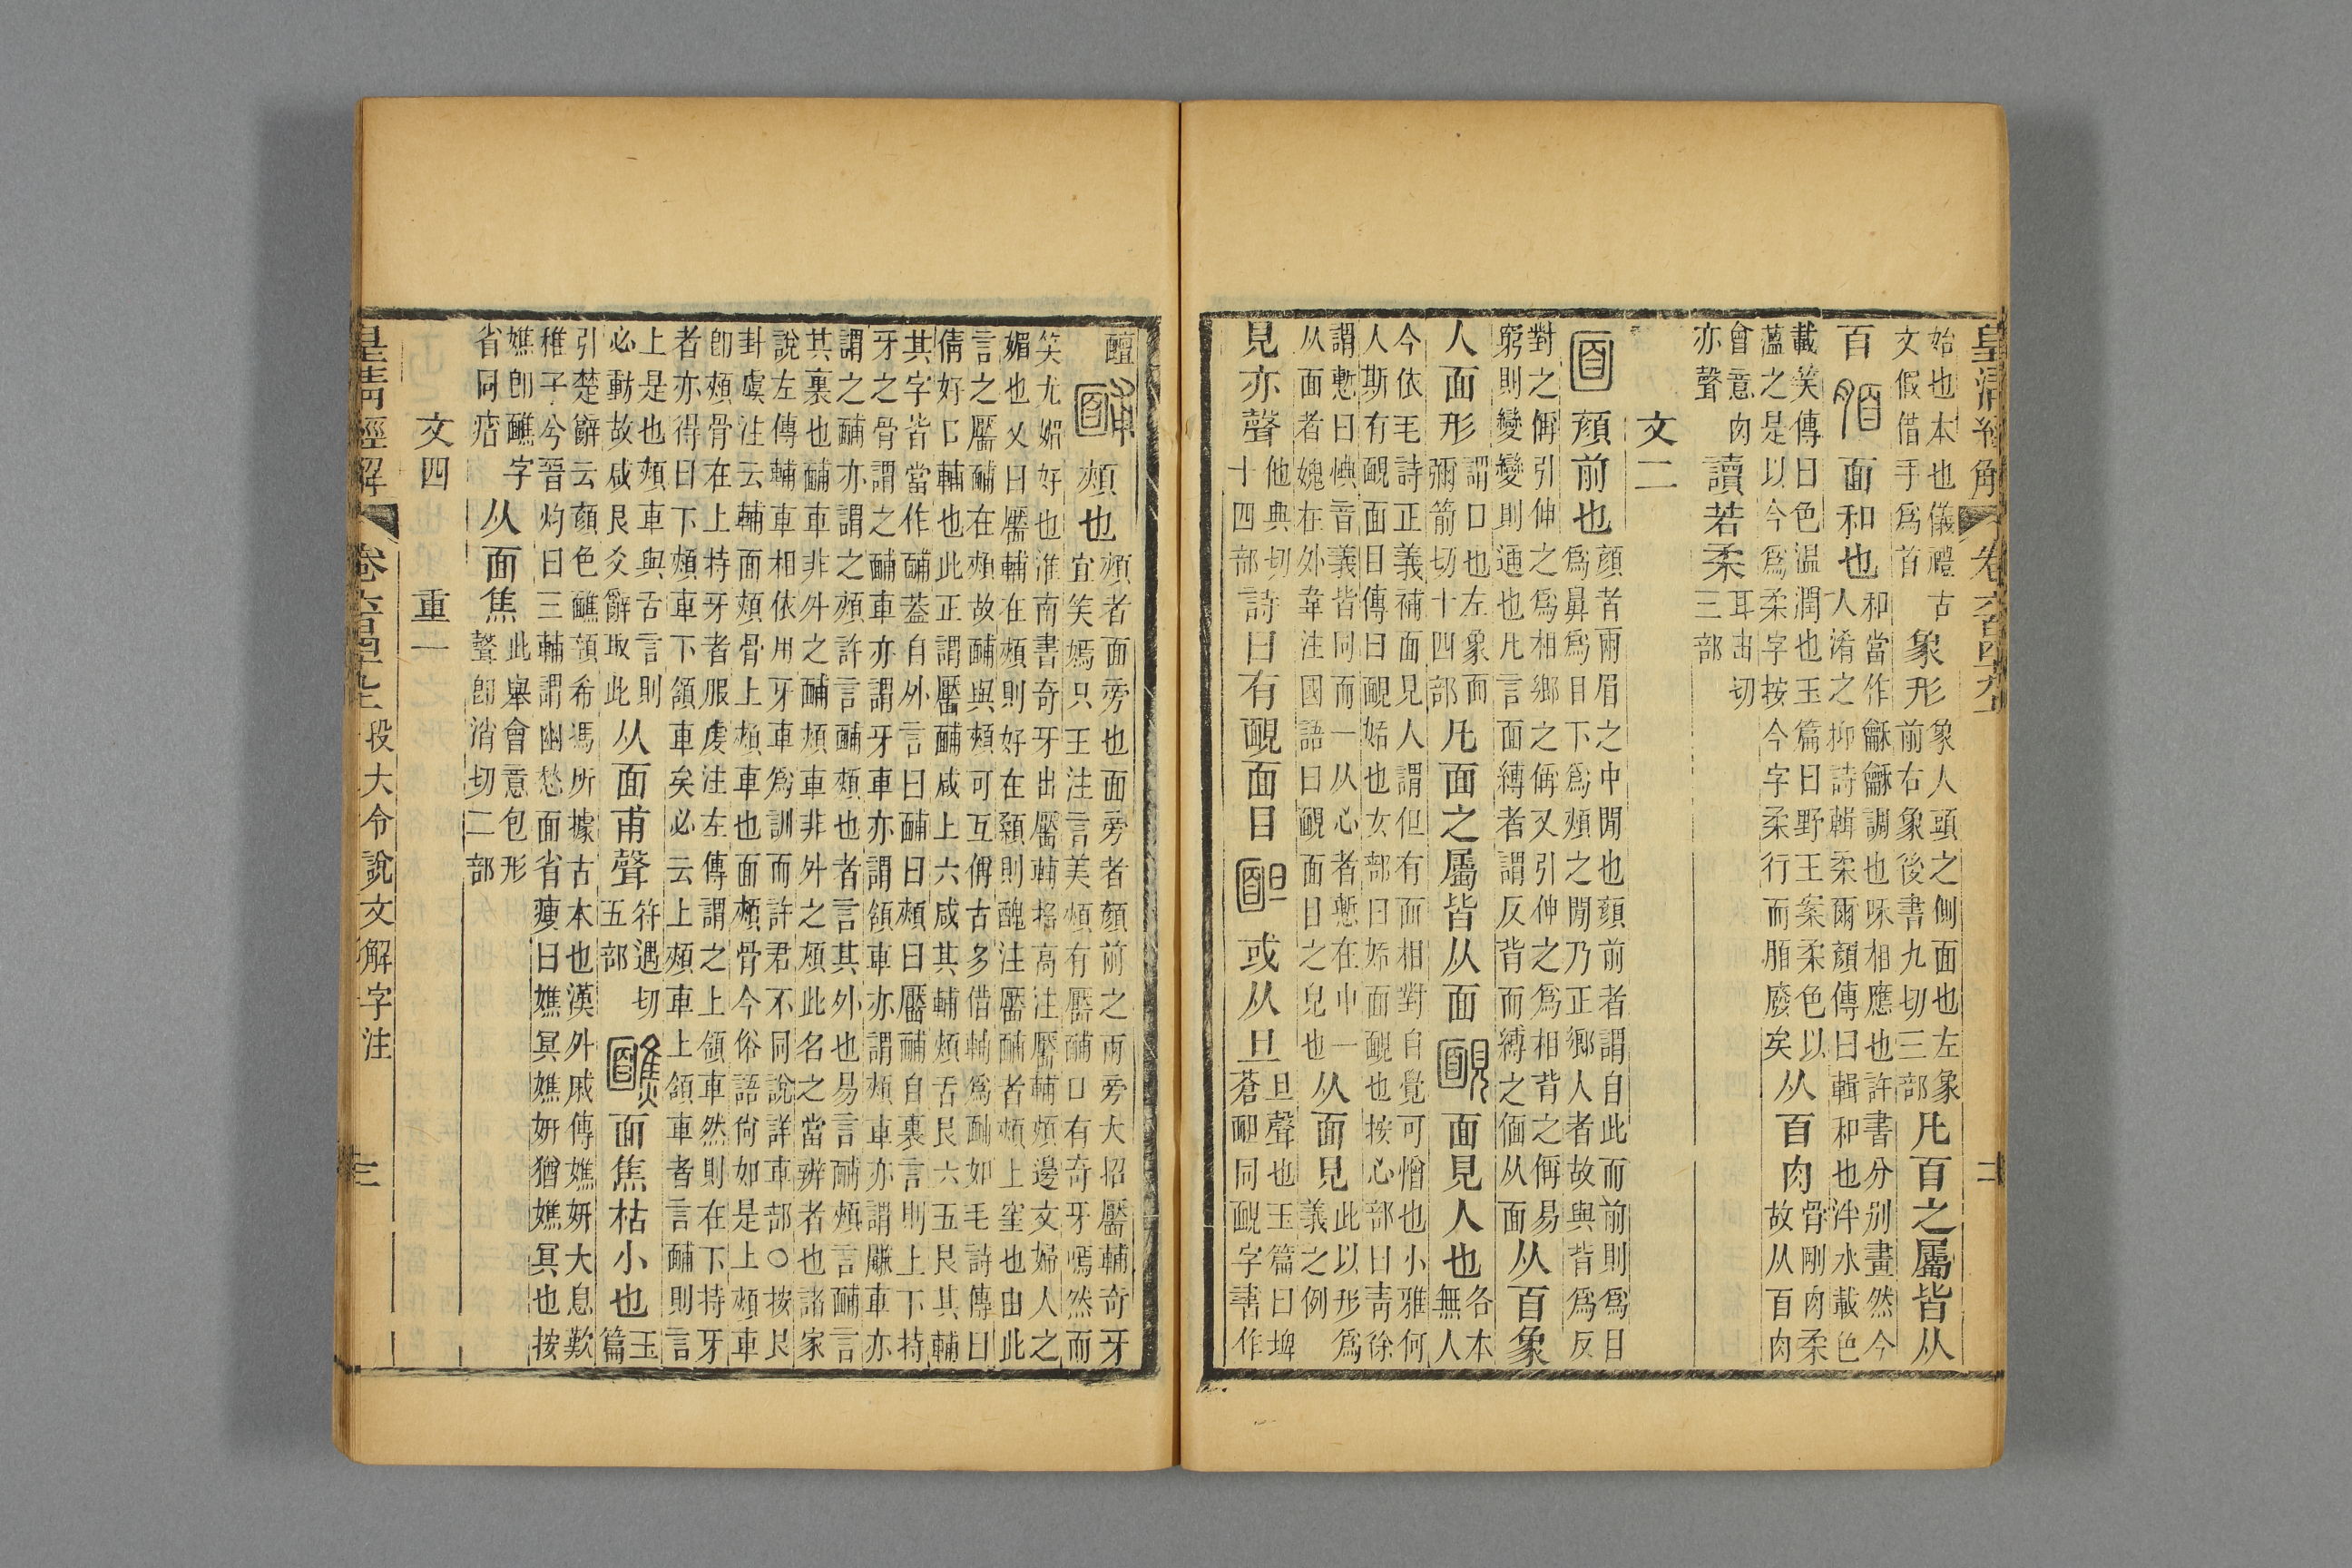 皇清經解 卷六百四十九上 二
始也本也儀禮古
文假借手爲首
象形
象人頭之側面也左象
前右象後書九切三部
凡百之屬皆从
百 面和也
和當作龢龢調也咊相應也許書分别畫然今
人淆之抑詩輯柔爾顏傳曰輯和也泮水載色
載笑傳曰色温潤也玉篇曰野王案柔色以
薀之是以今爲柔字按今字柔行而脜廢矣
从百肉
骨剛肉柔
故从百肉
會意肉
亦聲
讀若柔
耳由切
三部
文二
顏前也
顏者兩眉之中閒也顏前者謂自此而前則爲目
爲鼻爲目下爲頰之閒乃正鄉人者故與背爲反
對之偁引伸之爲相鄉之偁又引伸之爲相背之偁易
窮則變變則通也凡言面縛者謂反背而縛之偭从面
从百象
人面形
謂囗也左象面
彌箭切十四部
凡面之屬皆从面 面見人也
各本
無人
今依毛詩正義補面見人謂但有面相對自覺可憎也小雅何
人斯有靦面目傳曰靦姡也女部曰姡面靦也按心部曰靑徐
謂慙曰㥏音義皆同而一从心者慙在中一
从面者媿在外韋注國語曰靦面目之皃也
从面見
此以形爲
義之例
見亦聲
他典切
十四部
詩曰有靦面目 或从旦
旦聲也玉篇曰埤
蒼䩆同靦字書作
䩥
頰也
頰者面旁也面旁者顏前之兩旁大招靨輔奇牙
宜笑嫣只王注言美頰有靨䩉口有奇牙嫣然而
笑尤媚好也淮南書奇牙出靨䩉搖高注靨輔頰邊文婦人之
媚也又曰靨輔在頰則好在顙則醜注靨䩉者頰上窐也由此
言之靨䩉在頰故䩉與頰可互偁古多借輔爲䩉如毛詩傳曰
倩好口輔也此正謂靨䩉咸上六咸其輔頰舌艮六五艮其輔
其字皆當作䩉葢自外言曰䩉曰頰曰靨䩉自裏言則上下持
牙之骨謂之䩉車亦謂牙車亦謂頷車亦謂頰車亦謂鼸車亦
謂之䩉亦謂之頰許言䩉頰也者言其外也易言䩉頰言䩉言
其裏也䩉車非外之䩉頰車非外之頰此名之當辨者也諸家
說左傳輔車相依用牙車爲訓而許君不同說詳車部○按艮
卦虞注云輔面頰骨上頰車也面頰骨今俗語尚如是上頰車
卽頰骨在上持牙者服虔注左傳謂之上頷車然則在下持牙
者亦得曰下頰車下頷車矣必云上頰車上頷車者言䩉則言
上是也頰車與舌言則
必動故咸艮爻辭取此
从面甫聲
符遇切
五部
面焦枯小也
玉
篇
引楚辭云顏色醮顇希馮所據古本也漢外戚傳嫶妍大息歎
稚子兮晉灼曰三輔謂幽愁面省瘦曰嫶冥嫶妍猶嫶冥也按
嫶卽醮字
省同
从面焦
此舉會意包形
聲卽消切二部
文四 重一
皇清經解 卷六百四十九上 段大令說文解字注 三